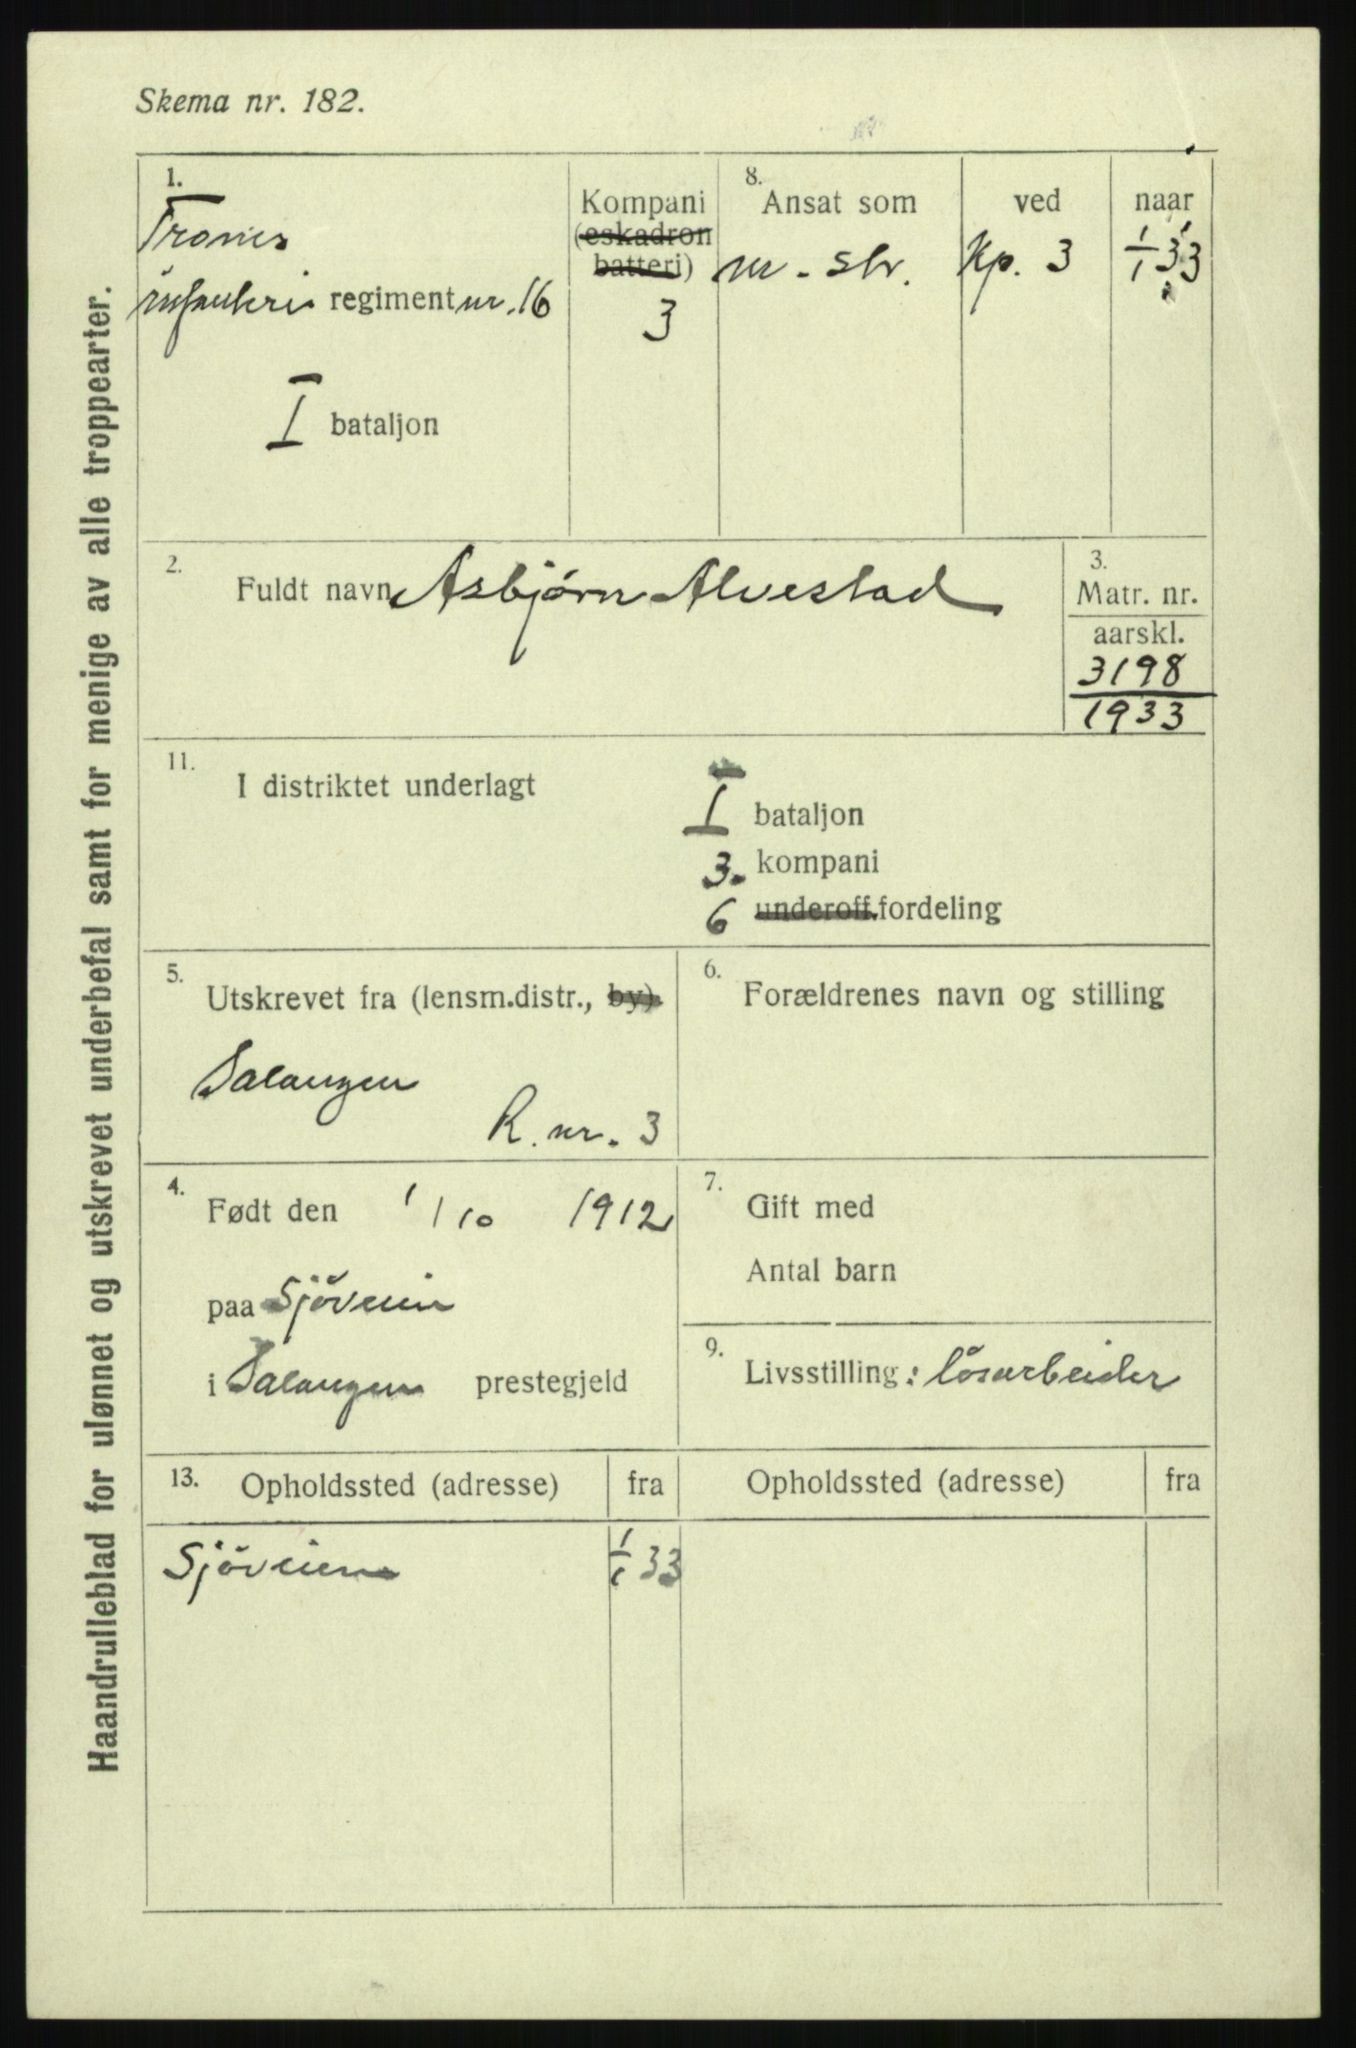 Skema nr. 182.
Haandrulleblad for ulønnet og utskrevet underbefal samt for menige av alle troppearter.
1.
Troms
infanteri regiment nr. 16
I bataljon
Kompani
(eskadron
batteri)
3
8. Ansat som
m - str.
ved
Kp. 3
naar
1/1 33
2. Fuldt navn Asbjørn Alvestad
3.
Matr. nr.
aarskl.
3198
1933
11. I distriktet underlagt
I bataljon
3. kompani
6 underoff.fordeling
5. Utskrevet fra (lensm.distr., by).
Salangen
R. nr. 3
6. Forældrenes navn og stilling
4. Født den 1/10 1912
paa Sjöveien
i Salangen prestegjeld
7. Gift med
Antal barn
9. Livsstilling: lösarbeider
13. Opholdssted (adresse) fra
Opholdssted (adresse) fra
Sjöveien 1/1 33